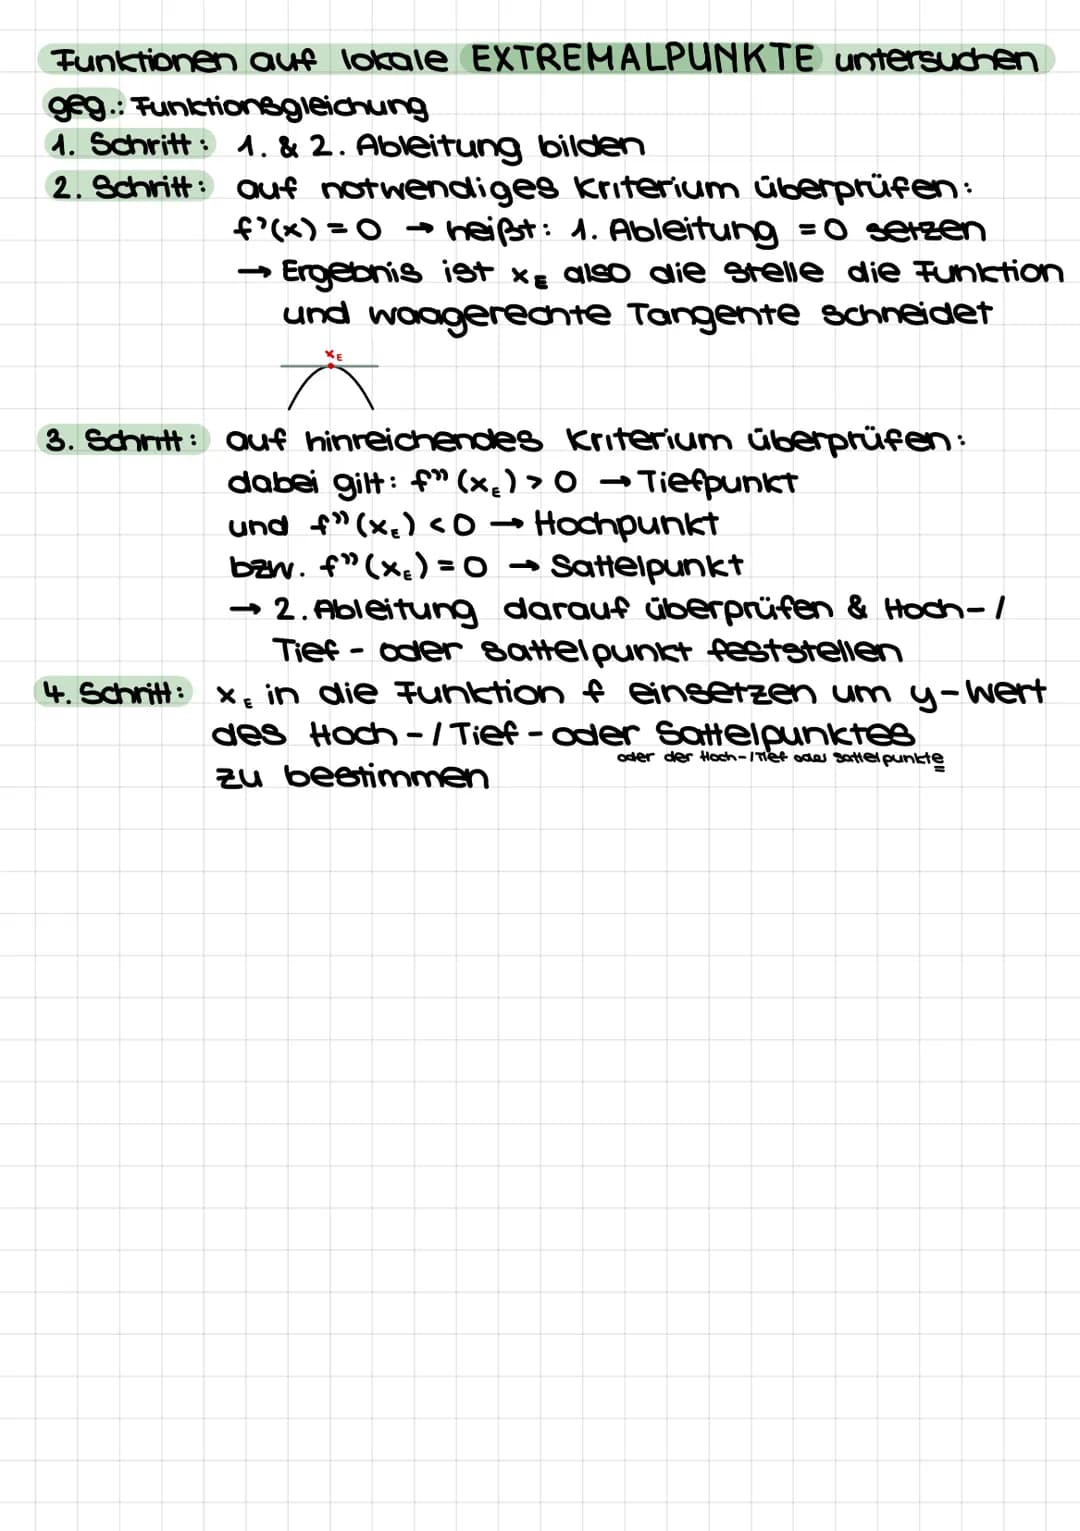 Funktionen auf lokale EXTREMALPUNKTE untersuchen
geg.: Funktionsgleichung
1. Schritt: 1. & 2. Ableitung bilden
2. Schritt: auf notwendiges Kriterium überprüfen:
f'(x) = 0 → heißt: 1. Ableitung = 0 setzen
→ Ergebnis ist xE also die Stelle die Funktion
und waagerechte Tangente schneidet
xE
3. Schritt: auf hinreichendes Kriterium überprüfen:
dabei gilt: f''(xE) > 0 → Tiefpunkt
und f''(xE) < 0 → Hochpunkt
bzw. f''(xE) = 0 → Sattelpunkt
→ 2. Ableitung darauf überprüfen & Hoch-/
Tief- oder Sattelpunkt feststellen
4. Schritt: xE in die Funktion f einsetzen um y-Wert
des Hoch-/Tief-oder Sattelpunktes
oder der Hoch-/Tief oder Sattelpunkte
zu bestimmen